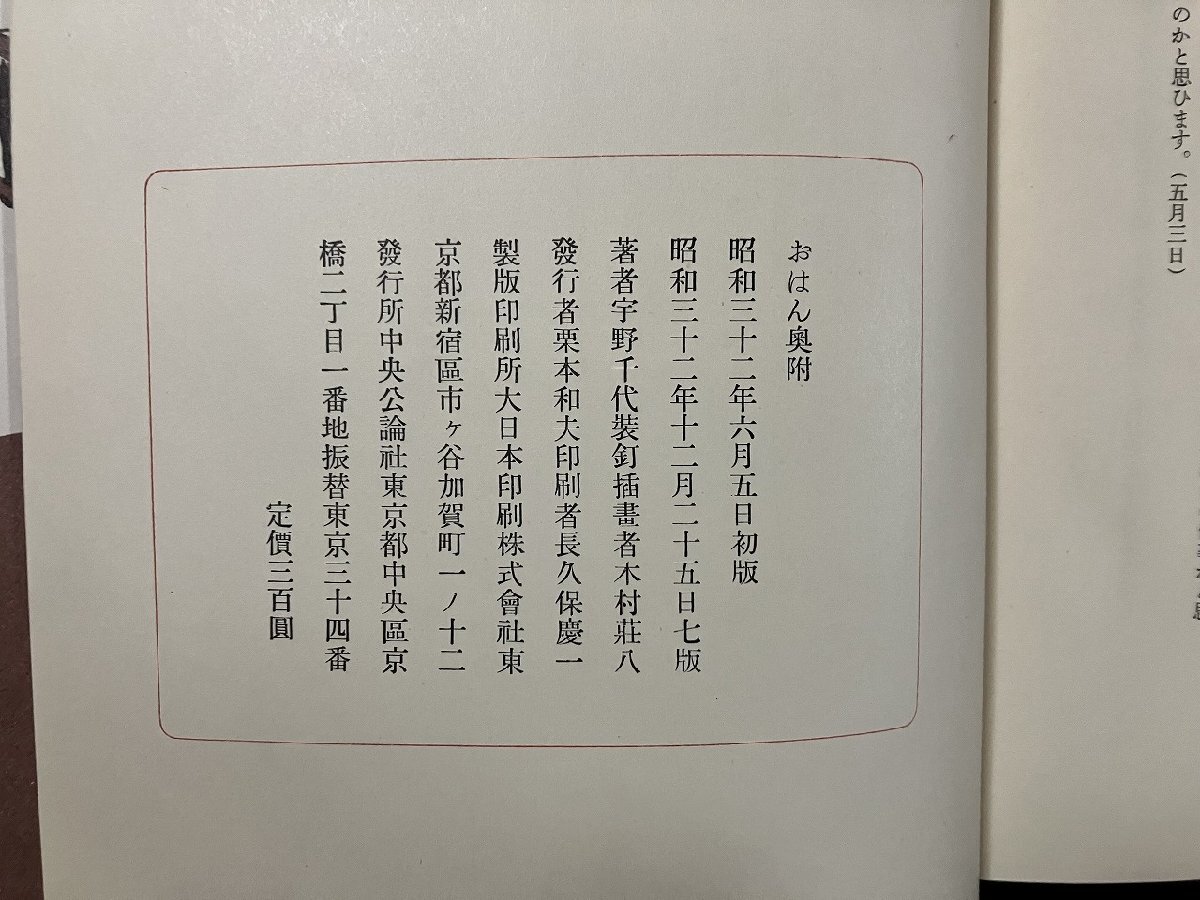 のかと思ひます。(五月三日)
おはん奥附
昭和三十二年六月五日初版
昭和三十二年十二月二十五日七版
著者宇野千代裝釘插畫者木村莊八
發行者栗本和夫印刷者長久保慶一
製版印刷所大日本印刷株式會社東
京都新宿區市ヶ谷加賀町一ノ十二
發行所中央公論社東京都中央區京
橋二丁目一番地振替東京三十四番
定價三百圓